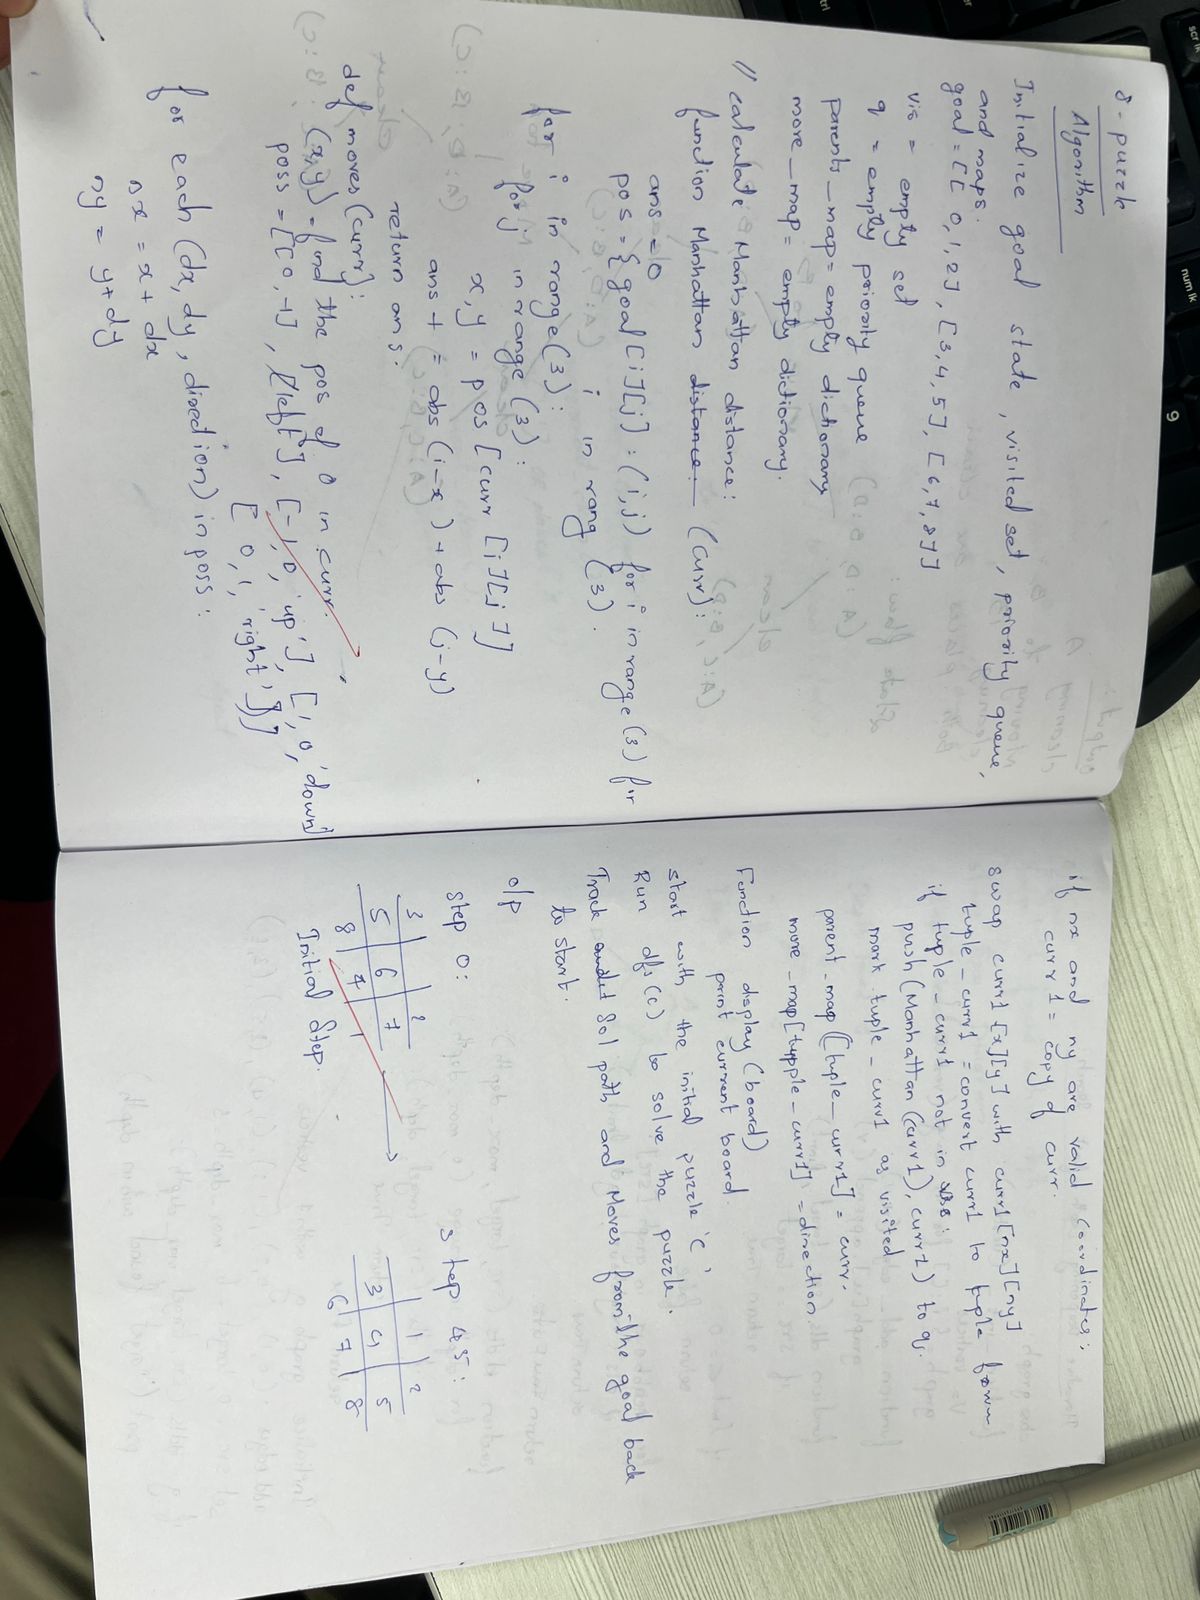 8-puzzle
Algorithm
Initialize goal state, visited set, priority queue,
and maps.
goal = [[0,1,2], [3,4,5], [6,7,8]]
vis = empty set
q = empty priority queue
parents_map = empty dictionary
move_map = empty dictionary.
// calculate Manhattan distance:
function Manhattan distance (curr):
ans = 0
pos = { goal[i][j] : (i,j) for i in range(3) for
i in rang (3).
for i in range(3):
for j in range(3):
x,y = pos[curr[i][j]]
ans += abs(i-x) + abs(j-y)
return ans.
def moves(curr):
(x,y) = find the pos of 0 in curr.
poss = [[0,-1, 'left'], [-1,0,'up'], [1,0,'down']
[0,1,'right']]
for each (dx, dy, direction) in poss:
nx = x + dx
ny = y + dy
if nx and ny are valid coordinates:
curr1 = copy of curr.
swap curr1[x][y] with curr1[nx][ny]
tuple_curr1 = convert curr1 to tuple form
if tuple_curr1 not in vis:
push(Manhattan(curr1), curr1) to q.
mark tuple_curr1 as visited
parent_map([tuple_curr1] = curr.
move_map[tupple_curr1] = direction
Function display(board)
print current board.
start with the initial puzzle 'c'
Run dfs(c) to solve the puzzle.
Track sol path and Moves from the goal back
to start.
o/p
Step 0:
3 2
5 6 7
8 4 1
Initial Step.
Step 45:
1 2
3 4 5
6 7 8
scr lk
num lk
9